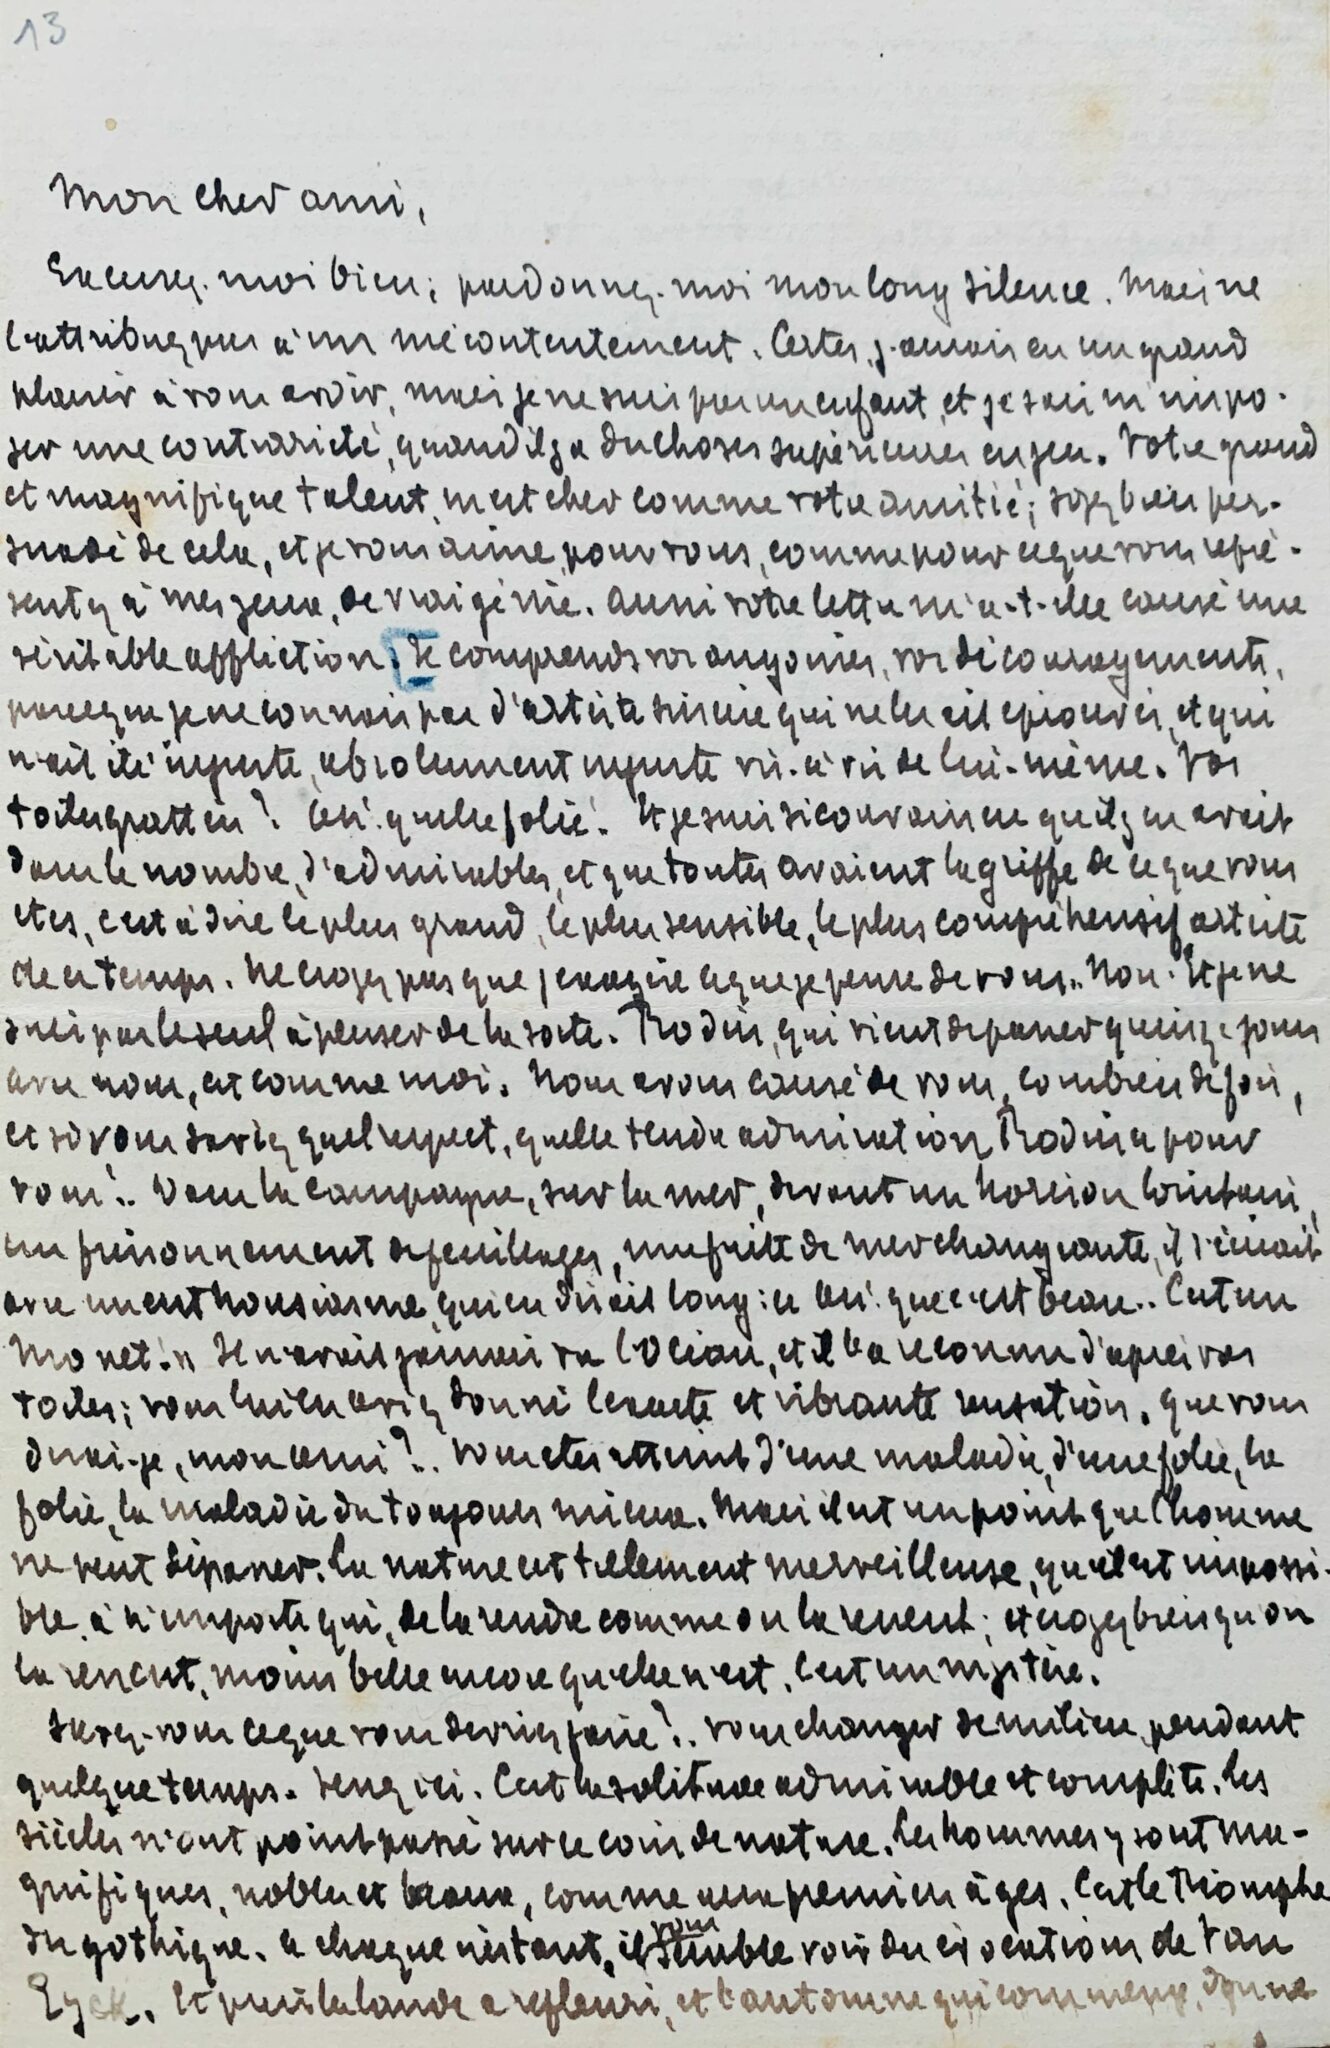 13
Mon cher ami,
Excusez-moi bien; pardonnez-moi mon long silence. Mais ne
l'attribuez pas à un mécontentement. Certes, j'aurais eu un grand
plaisir à vous avoir, mais je ne suis pas un enfant, et je sais m'impo-
ser une contrariété, quand il y a des choses supérieures en jeu. Votre grand
et magnifique talent m'est cher comme votre amitié; soyez bien per-
suadé de cela, et je vous aime, pour vous, comme pour ce que vous repré-
sentez à mes yeux, de vrai génie. Aussi votre lettre m'a-t-elle causé une
véritable affliction. Je comprends vos angoisses, vos découragements,
parce que je ne connais pas d'artiste sincère qui ne les ait éprouvés, et qui
n'ait été injuste, absolument injuste vis-à-vis de lui-même. Vos
toiles grattées! Ah! quelle folie! Et je suis si convaincu qu'il y en avait
dans le nombre, d'admirables, et que toutes avaient la griffe de ce que vous
êtes, c'est à dire le plus grand, le plus sensible, le plus compréhensif artiste
de ce temps. Ne croyez pas que j'exagère ce que je pense de vous.. Non. Et je ne
suis pas le seul à penser de la sorte. Rodin, qui vient de passer quinze jours
avec nous, est comme moi. Nous avons causé de vous, combien de fois,
et si vous saviez quel respect, quelle tendre admiration Rodin a pour
vous!.. Dans la campagne, sur la mer, devant un horizon lointain,
un frissonnement de feuillages, une fuite de mer changeante, il s'écriait
avec un enthousiasme, qui en disait long: « Ah! que c'est beau.. C'est un
Monet! » Il n'avait jamais vu l'Océan, et il l'a reconnu d'après vos
toiles; vous lui en aviez donné l'exacte et vibrante sensation. Que vous
dirai-je, mon ami?.. Vous êtes atteint d'une maladie, d'une folie, la
folie, la maladie du toujours mieux. Mais il est un point que l'homme
ne peut dépasser. La nature est tellement merveilleuse, qu'il est impossi-
ble, à n'importe qui, de la rendre comme on la ressent; et croyez bien qu'on
la ressent, moins belle encore qu'elle n'est. C'est un mystère.
Savez-vous ce que vous devriez faire?.. vous changer de milieu, pendant
quelque temps. Venez ici. C'est la solitude admirable et complète. Les
siècles n'ont point passé sur ce coin de nature. Les hommes y sont ma-
gnifiques, nobles et beaux, comme aux premiers âges. C'est le triomphe
du gothique. A chaque instant, il vous semble voir des évocations de Van
Eyck. Et puis la lande a refleuri, et l'automne qui commence, donne